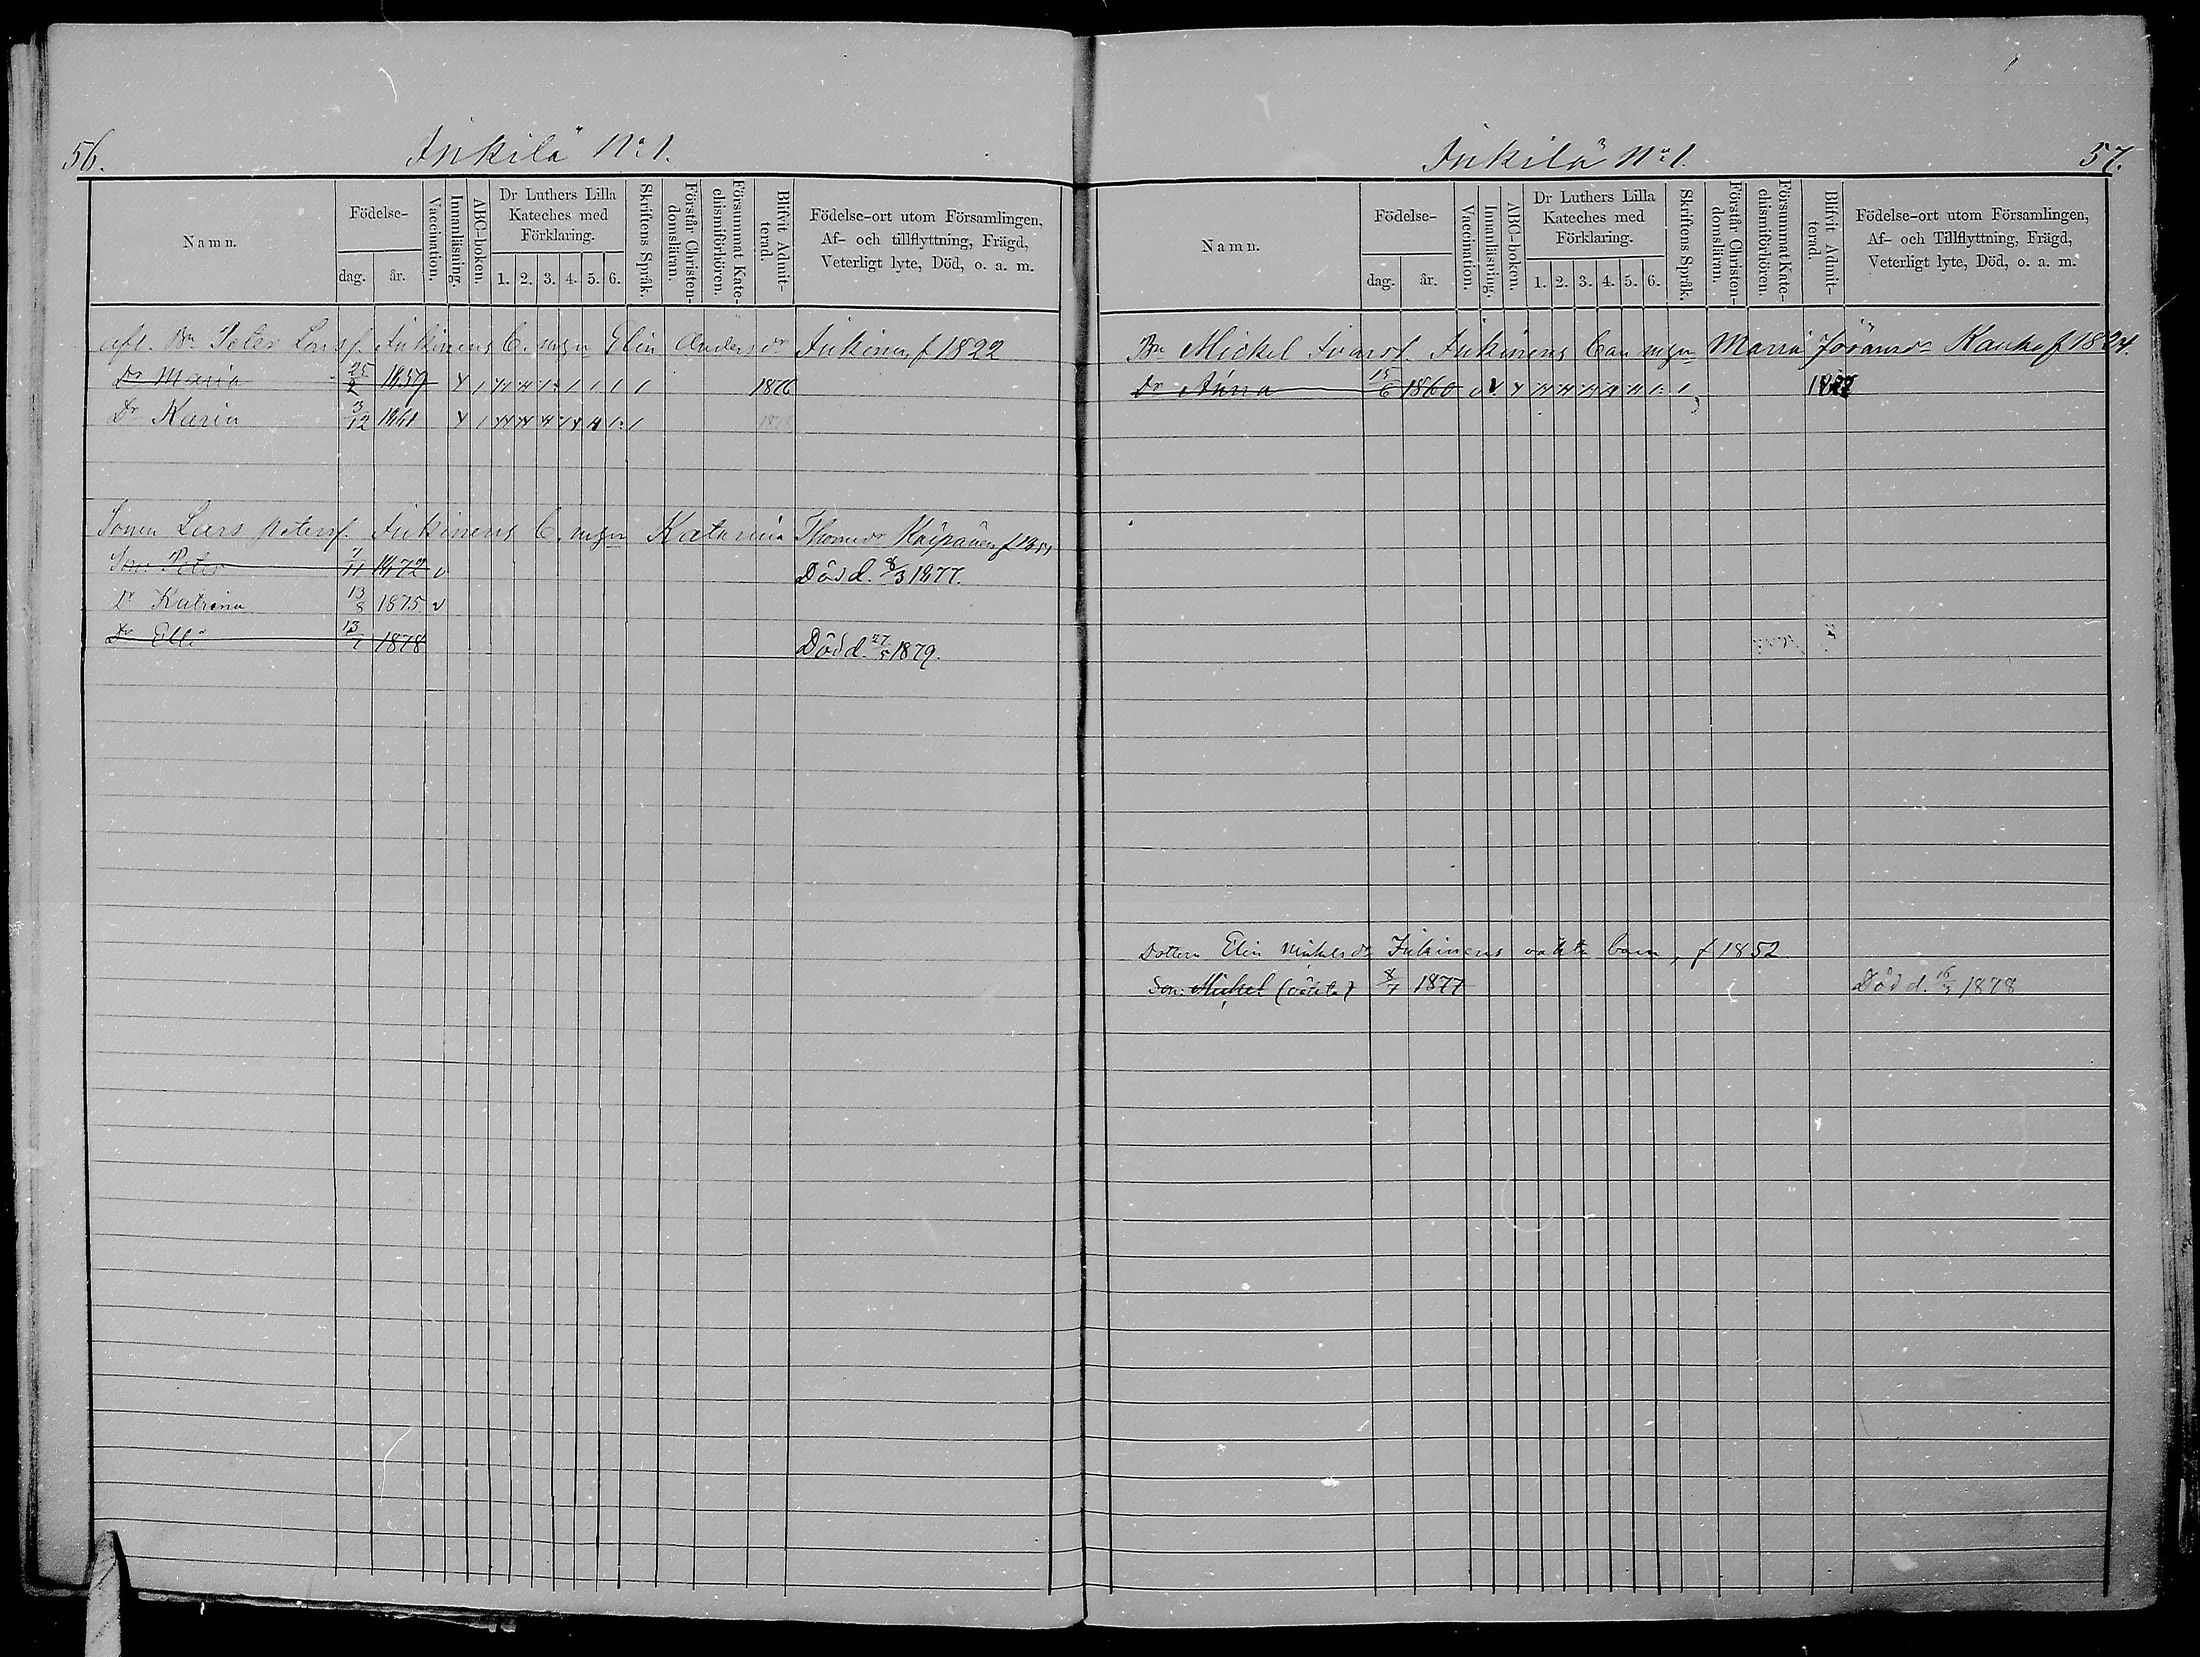 56.
Inkilä No 1.
Namn.
Födelse-
dag. år.
Vaccination.
Innanläsning.
ABC-boken.
Dr Luthers Lilla Kateches med Förklaring.
1. 2. 3. 4. 5. 6.
Skriftens Språk.
Förstår Christen-domsläran.
Försummat Kate-chismiförhören.
Blifvit Admit-terad.
Födelse-ort utom Församlingen,
Af- och tillflyttning, Frägd,
Veterligt lyte, Död, o. a. m.
afl. Bn Peter Larsf. Inkinens C. mgn Elin Andersdr Inkinen f 1822
Dr Maria 25/2 1857 1876
Dr Karin 3/12 1861
Sonen Lars Petersf. Inkinens C. mgn Katarina Thomasdr
Son Peter 1872 v Död d. 8/3 1877.
Dr Katrina 13/8 1875 v
Dr Elli 13/7 1878 Död d. 27/5 1879.
57.
Inkilä No 1.
Namn.
Födelse-
dag. år.
Vaccination.
Innanläsning.
ABC-boken.
Dr Luthers Lilla Kateches med Förklaring.
1. 2. 3. 4. 5. 6.
Skriftens Språk.
Förstår Christen-domsläran.
Försummat Kate-chismiförhören.
Blifvit Admit-terad.
Födelse-ort utom Församlingen,
Af- och Tillflyttning, Frägd,
Veterligt lyte, Död, o. a. m.
Bn Mickel Inkinens C mgn Maria Jöransdr Kauko f 1824.
Dr Anna 15/6 1860 1877
Dottern Elin Mickelsdr Inkinens oäkta barn, f 1852
Son Mickel (oäkta) 8/7 1877 Död d. 1878